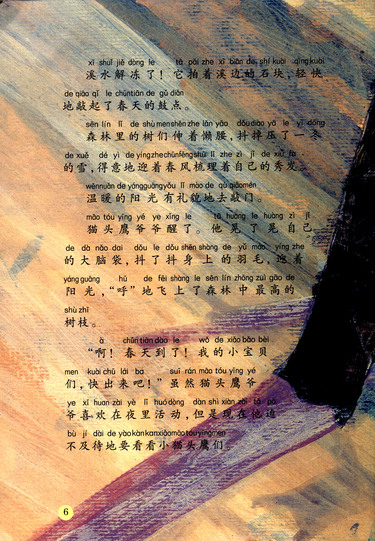 xī shuǐ jiě dòng le tā pāi zhe xī biān de shí kuài qīng kuài
溪水解冻了！它拍着溪边的石块，轻快
de qiāo qǐ le chūn tiān de gǔ diǎn
地敲起了春天的鼓点。
sēn lín lǐ de shù men shēn zhe lǎn yāo dǒu diào yā le yì dōng
森林里的树们伸着懒腰，抖掉压了一冬
de xuě dé yì de yíng zhe chūn fēng shū lǐ zhe zì jǐ de xiù fà
的雪，得意地迎着春风梳理着自己的秀发。
wēn nuǎn de yáng guāng yǒu lǐ mào de qù qiāo mén
温暖的阳光有礼貌地去敲门。
māo tóu yīng yé ye xǐng le tā huàng le huàng zì jǐ
猫头鹰爷爷醒了。他晃了晃自己
de dà nǎo dai dǒu le dǒu shēn shàng de yǔ máo yíng zhe
的大脑袋，抖了抖身上的羽毛，迎着
yáng guāng hū de fēi shàng le sēn lín zhōng zuì gāo de
阳光，“呼”地飞上了森林中最高的
shù zhī
树枝。
à chūn tiān dào le wǒ de xiǎo bǎo bèi
“啊！春天到了！我的小宝贝
men kuài chū lái ba suī rán māo tóu yīng yé
们，快出来吧！”虽然猫头鹰爷
ye xǐ huan zài yè lǐ huó dòng dàn shì xiàn zài tā pò
爷喜欢在夜里活动，但是现在他迫
bù jí dài de yào kàn kan xiǎo māo tóu yīng men
不及待地要看看小猫头鹰们。
6